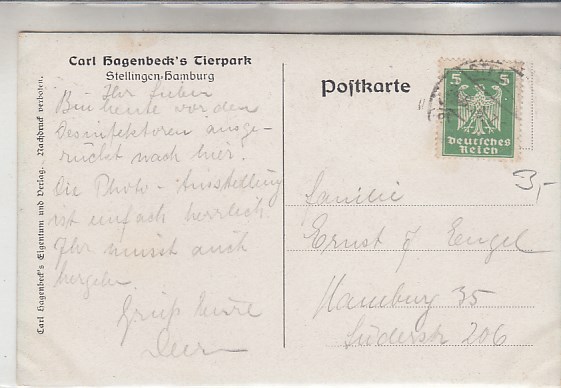 Carl Hagenbeck's Tierpark
Stellingen-Hamburg
Ihr Lieben
Bin heute vor den
Desinfektoren ausge-
rückt nach hier.
Die Photo-Ausstellung
ist einfach herrlich.
Ihr müsst auch
hergehn.
Gruß Eure
Carl Hagenbeck's Eigentum und Verlag. Nachdruck verboten.
Postkarte
5 5
Deutsches
Reich
3,-
Familie
Ernst J Engel
Hamburg 35
Süderstr 206